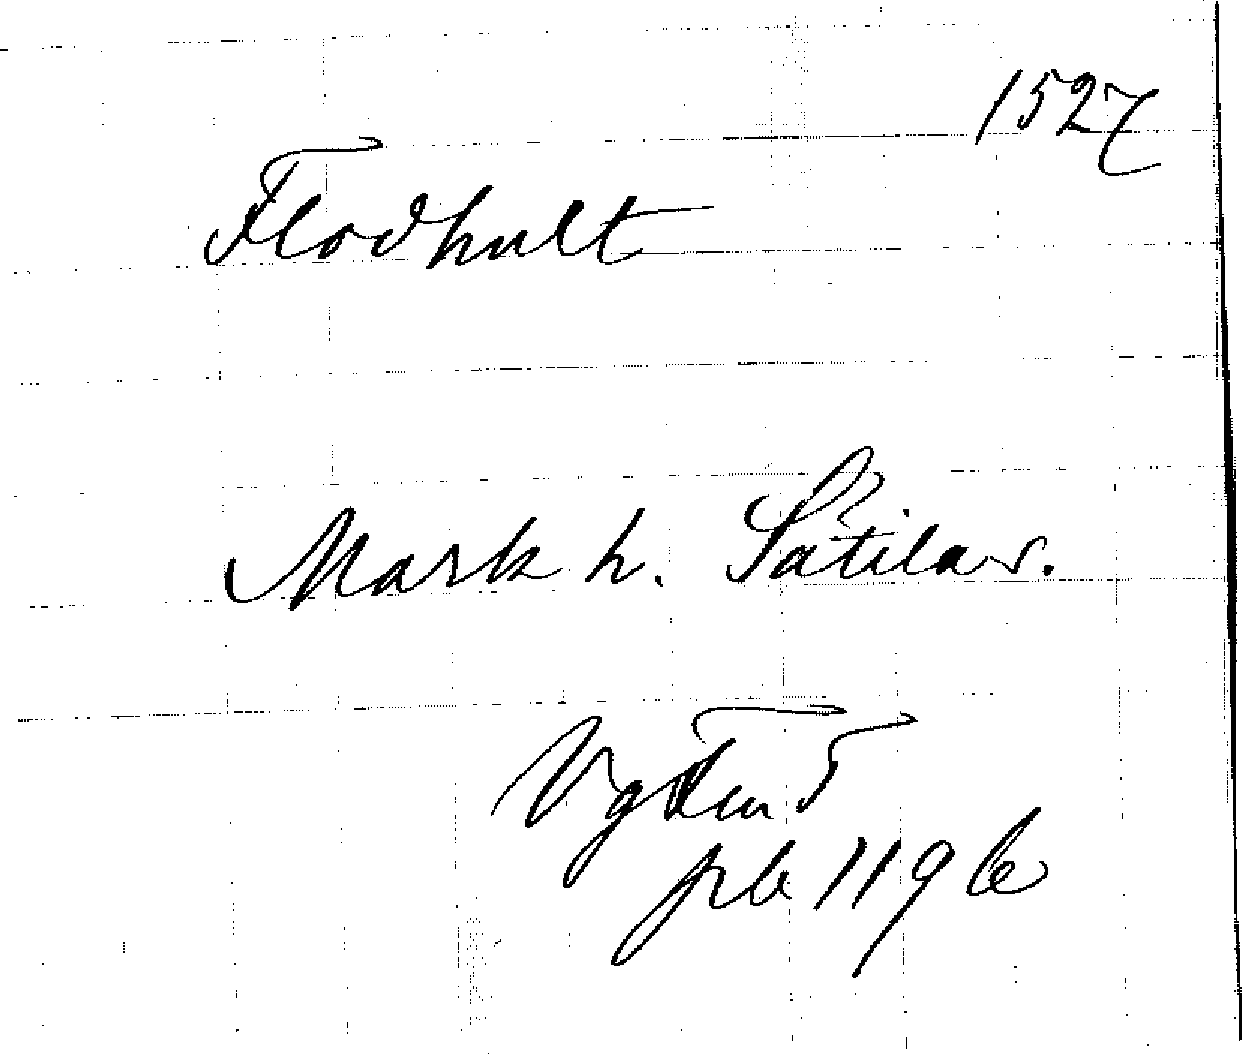 1527
Flodhult
Mark h. Sätila s.
Vg 5
pb 119 b